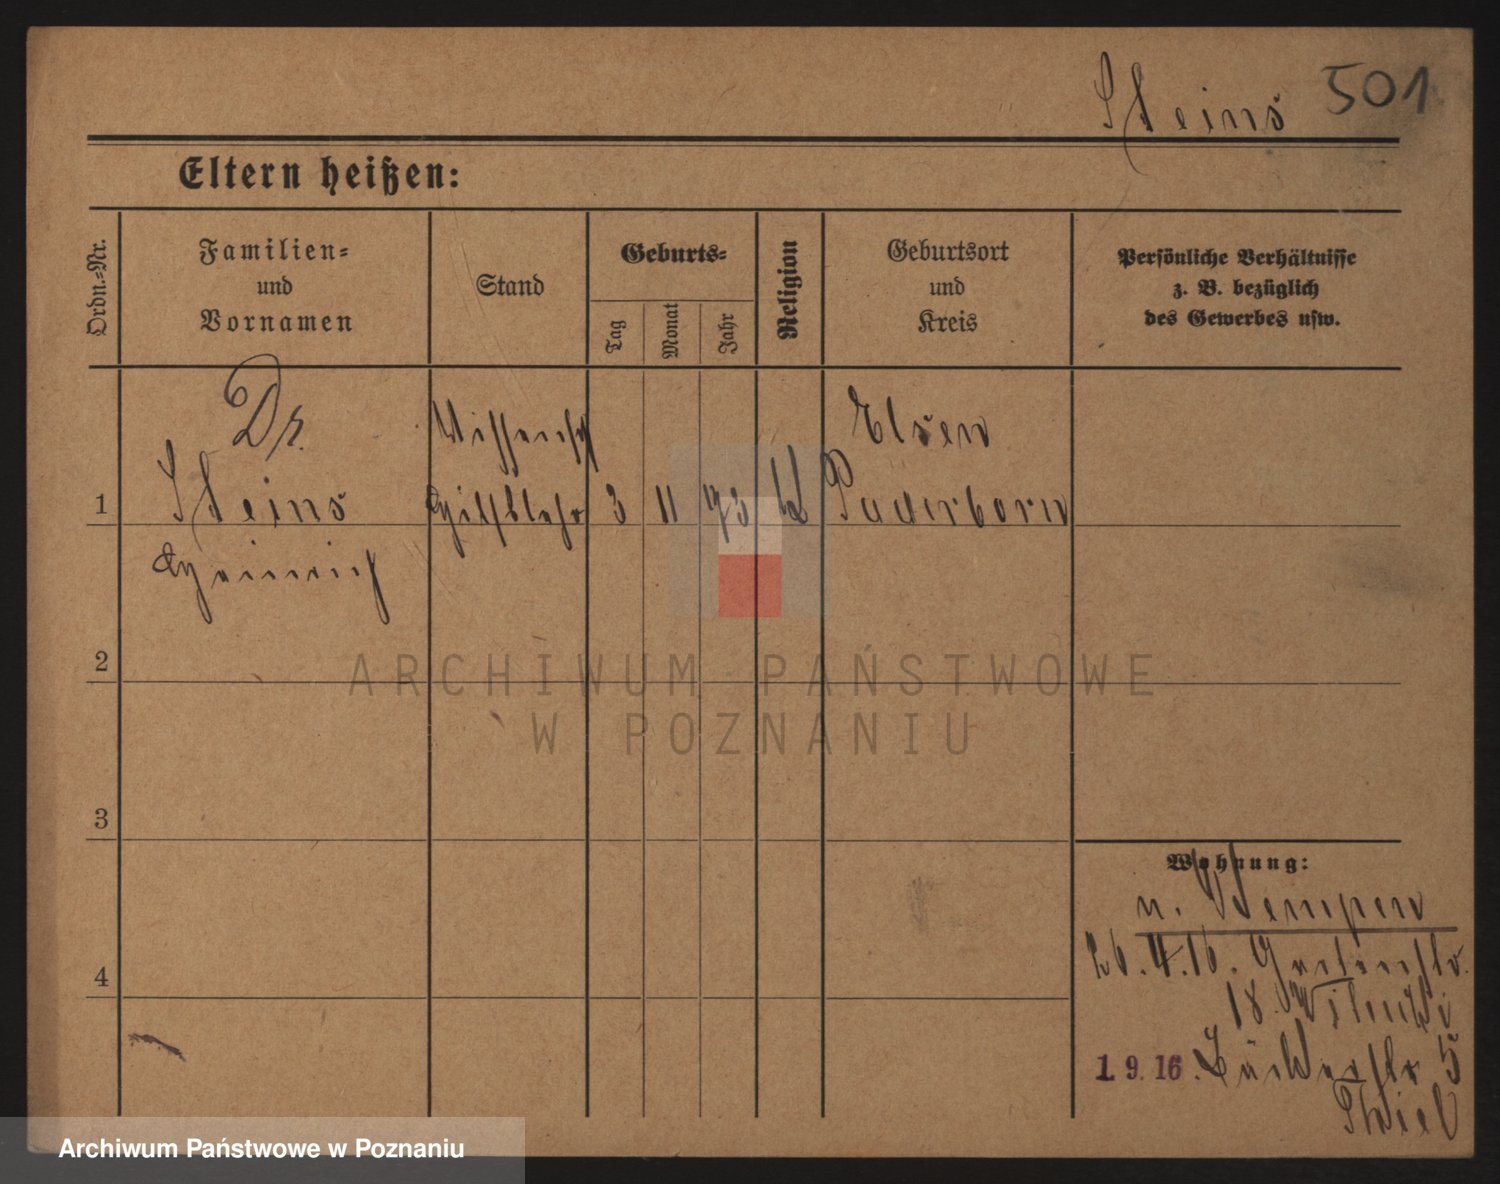 Steins 501
Eltern heißen:
Ordn.-Nr.
Familien-
und
Vornamen
Stand
Geburts-
Tag
Monat
Jahr
Religion
Geburtsort
und
Kreis
Persönliche Verhältnisse
z. B. bezüglich
des Gewerbes usw.
Dr.
Wissensch Elsen
1 Steins Hilfslehr 3 11 73 k Paderborn
Heinrich
2
3
4
Wohnung:
n. Kempen
26.4.16. Gartenstr.
18
1.9.16. Bäckerstr 5
ARCHIWUM PAŃSTWOWE
W POZNANIU
Archiwum Państwowe w Poznaniu